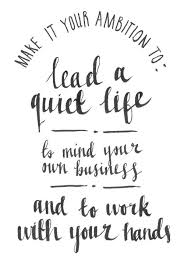 MAKE IT YOUR AMBITION TO:
lead a
quiet life
to mind your
own business
and to work
with your hands